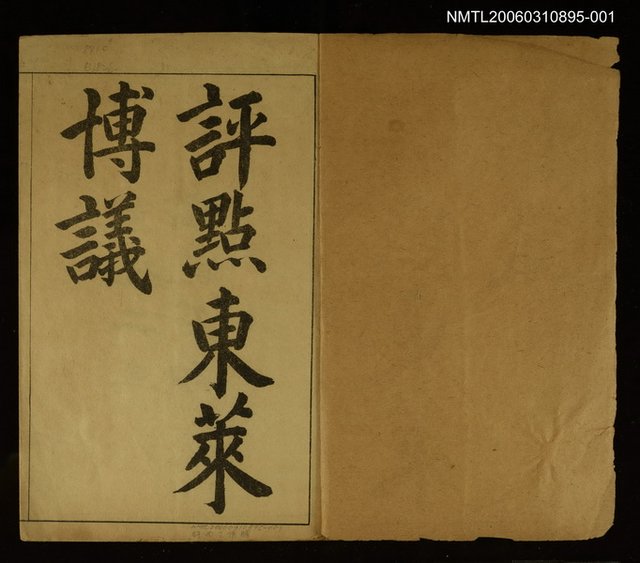 NMTL20060310895-001
評點東萊
博議